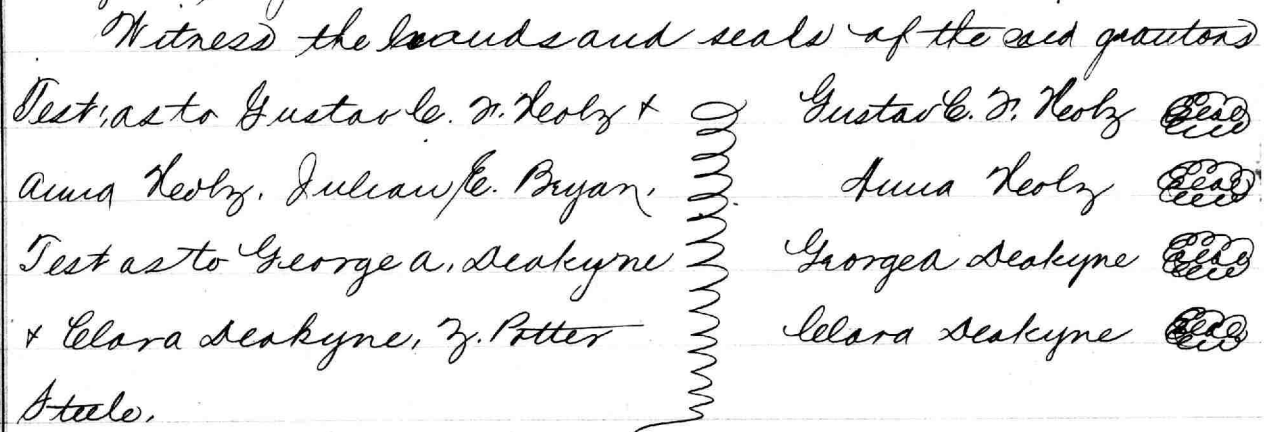 Witness the hands and seals of the said grantors
Test: as to Gustav C. F. Holz &
Anna Holz, Julian E. Bryan.
Test as to George A. Deakyne
& Clara Deakyne, Z. Potter
Steele.
Gustav C. F. Holz Seal
Anna Holz Seal
George A Deakyne Seal
Clara Deakyne Seal